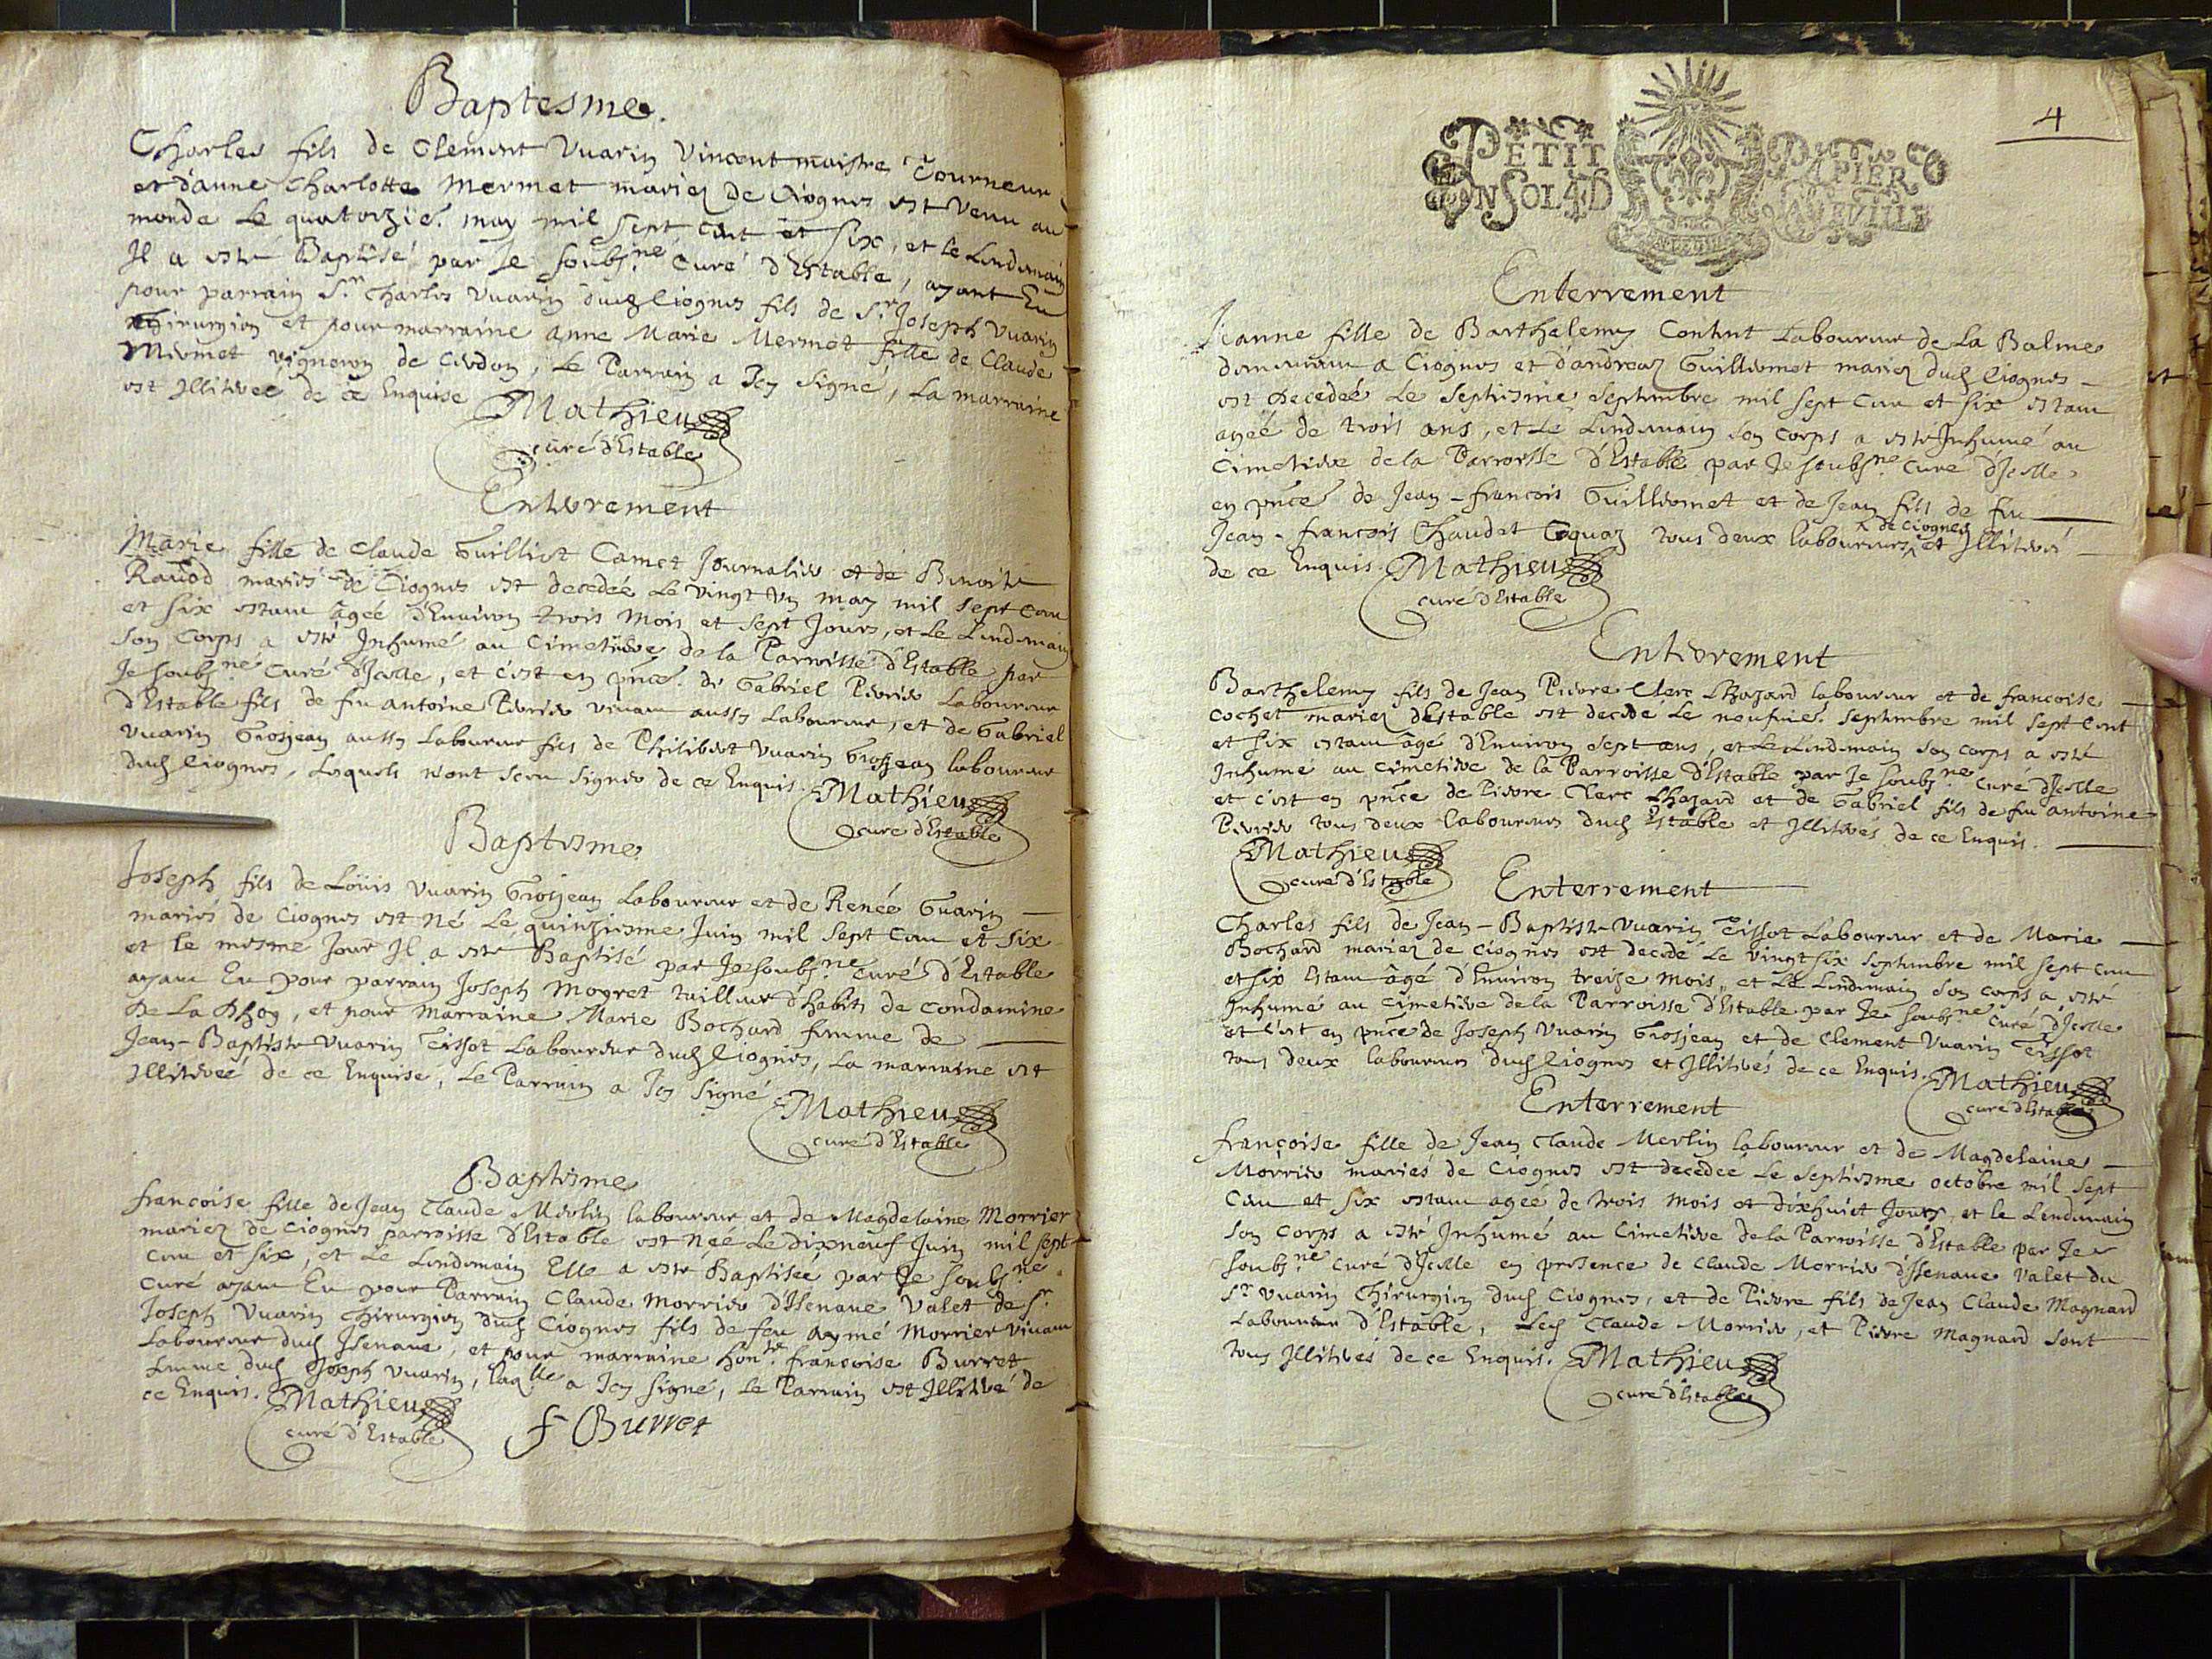 Baptesme.
Charles fils de Clement Vuarin Vincent maistre Tourneur
et d'anne Charlotte Mermet mariez de Ciognes est venu au
monde Le quatorzie. may mil sept cent et six, et le Lendemain
Il a esté Baptisé par Je soubs.né Curé d'Estable, ayant Eu
pour parrain S.r Charles Vuarin dud Ciognes fils de S.r Joseph Vuarin
Chirurgien et pour marraine anne Marie Mermet fille de Claude
Mermet vigneron de Cerdon, Le Parrain a Icy signé, La marraine
est Illiterée de ce Enquise
Mathieu
curé d'Estable
Enterrement
Marie fille de Claude Guilliot Camet Journalier et de Benoite
Ravod mariés de Ciognes est decedée Le vingt un may mil sept cens
et six estant âgée d'Environ trois mois et sept Jours, et Le Lendemain
son Corps a esté Inhumé au Cimetiere de la Parroisse d'Estable par
Je soubs.né Curé d'Icelle, et c'est en pnce. de Gabriel Perrier Laboureur
d'Estable fils de feu antoine Perrier vivant aussy Laboureur, et de Gabriel
Vuarin Grosjean aussy Laboureur fils de Philibert Vuarin Grosjean laboureur
dud Ciognes, Lesquels n'ont sceu signer de ce Enquis.
Mathieu
curé d'Estable
Baptesme
Joseph fils de Loüis Vuarin Grosjean Laboureur et de Renée Guarin
mariés de Ciognes est né Le quinziesme Juin mil sept Cens et six
et le mesme Jour Il a esté Baptisé par Je soubs.né Curé d'Estable
ayant Eu pour parrain Joseph Mogret tailleur d'habits de Condamine
De La , et pour Marraine Marie Bochard femme de
Jean-Baptiste Vuarin Tissot Laboureur dud Ciognes, La marraine est
Illiterée de ce Enquise, Le Parrain a Icy signé
Mathieu
curé d'Estable
Baptesme
françoise fille de Jean Claude Merlin laboureur et de Magdelaine Morrier
mariez de Ciognes parroisse d'Estable est née Le dixneuf Juin mil sept
Cens et six, et Le Lendemain Elle a esté Baptisée par Je soubs.né
Curé ayant Eu pour Parrain Claude Morrier d'Isenave Valet de S.r
Joseph Vuarin Chirurgien dud Ciognes fils de feu Aymé Morrier vivant
Laboureur dud Isenave, et pour marraine hon.te francoise Burret
femme dud Joseph Vuarin, laq.lle a Icy signé, Le Parrain est Illiteré de
ce Enquis.
Mathieu
curé d'Estable
f Burret
4
PETIT PAPIER
UN SOL 4D LA FEVILLE
Enterrement
Jeanne fille de Barthelemy Contut Laboureur de La Balme
demeurant a Ciognes et d'andreaz Guillermet mariez dud Ciognes
est decedée Le septiesme septembre mil sept Cens et six estant
agée de trois ans, et Le Lendemain son corps a esté Inhumé au
Cimetiere de la Parroisse d'Estable par Je soubs.né Curé d'Icelle
en pnce de Jean-francois Guillermet et de Jean fils de feu
Jean-francois Chaudet Coquaz tous deux laboureurs de Ciognes et Illiterés
de ce Enquis.
Mathieu
curé d'Estable
Enterrement
Barthelemy fils de Jean Pierre Clerc Lhazard laboureur et de francoise
Cochet mariez d'Estable est decedé Le neufuie. septembre mil sept Cent
et six estant âgé d'Environ sept ans, et Le Lendemain son corps a esté
Inhumé au Cimetiere de la Parroisse d'Estable par Je soubs.né Curé d'Icelle
et c'est en pnce de Pierre Clerc Lhazard et de Gabriel fils de feu antoine
Perrier tous deux laboureurs dud Estable et Illiterés de ce Enquis.
Mathieu
curé d'Estable
Enterrement
Charles fils de Jean-Baptiste Vuarin Tissot Laboureur et de Marie
Bochard mariez de Ciognes est decedé Le vingt six septembre mil sept Cens
et six Estant âgé d'Environ treize mois, et Le Lendemain son corps a esté
Inhumé au Cimetiere de la Parroisse d'Estable par Je soubs.né Curé d'Icelle
et c'est en pnce de Joseph Vuarin Grosjean et de Clement Vuarin Tissot
tous deux laboureurs dud Ciognes et Illiterés de ce Enquis.
Mathieu
curé d'Estable
Enterrement
françoise fille de Jean Claude Merlin laboureur et de Magdelaine
Morrier mariés de Ciognes est decedée Le septiesme octobre mil sept
Cens et six estant agée de trois mois et dixhuict Jours, et le Lendemain
son Corps a esté Inhumé au Cimetiere de la Parroisse d'Estable par Je
soubs.né Curé d'Icelle en presence de Claude Morrier d'Isenave Valet du
S.r Vuarin Chirurgien dud Ciognes, et de Pierre fils de Jean Claude Magnard
Laboureur d'Estable, Lesd Claude Morrier, et Pierre Magnard sont
tous Illiterés de ce Enquis.
Mathieu
curé d'Estable